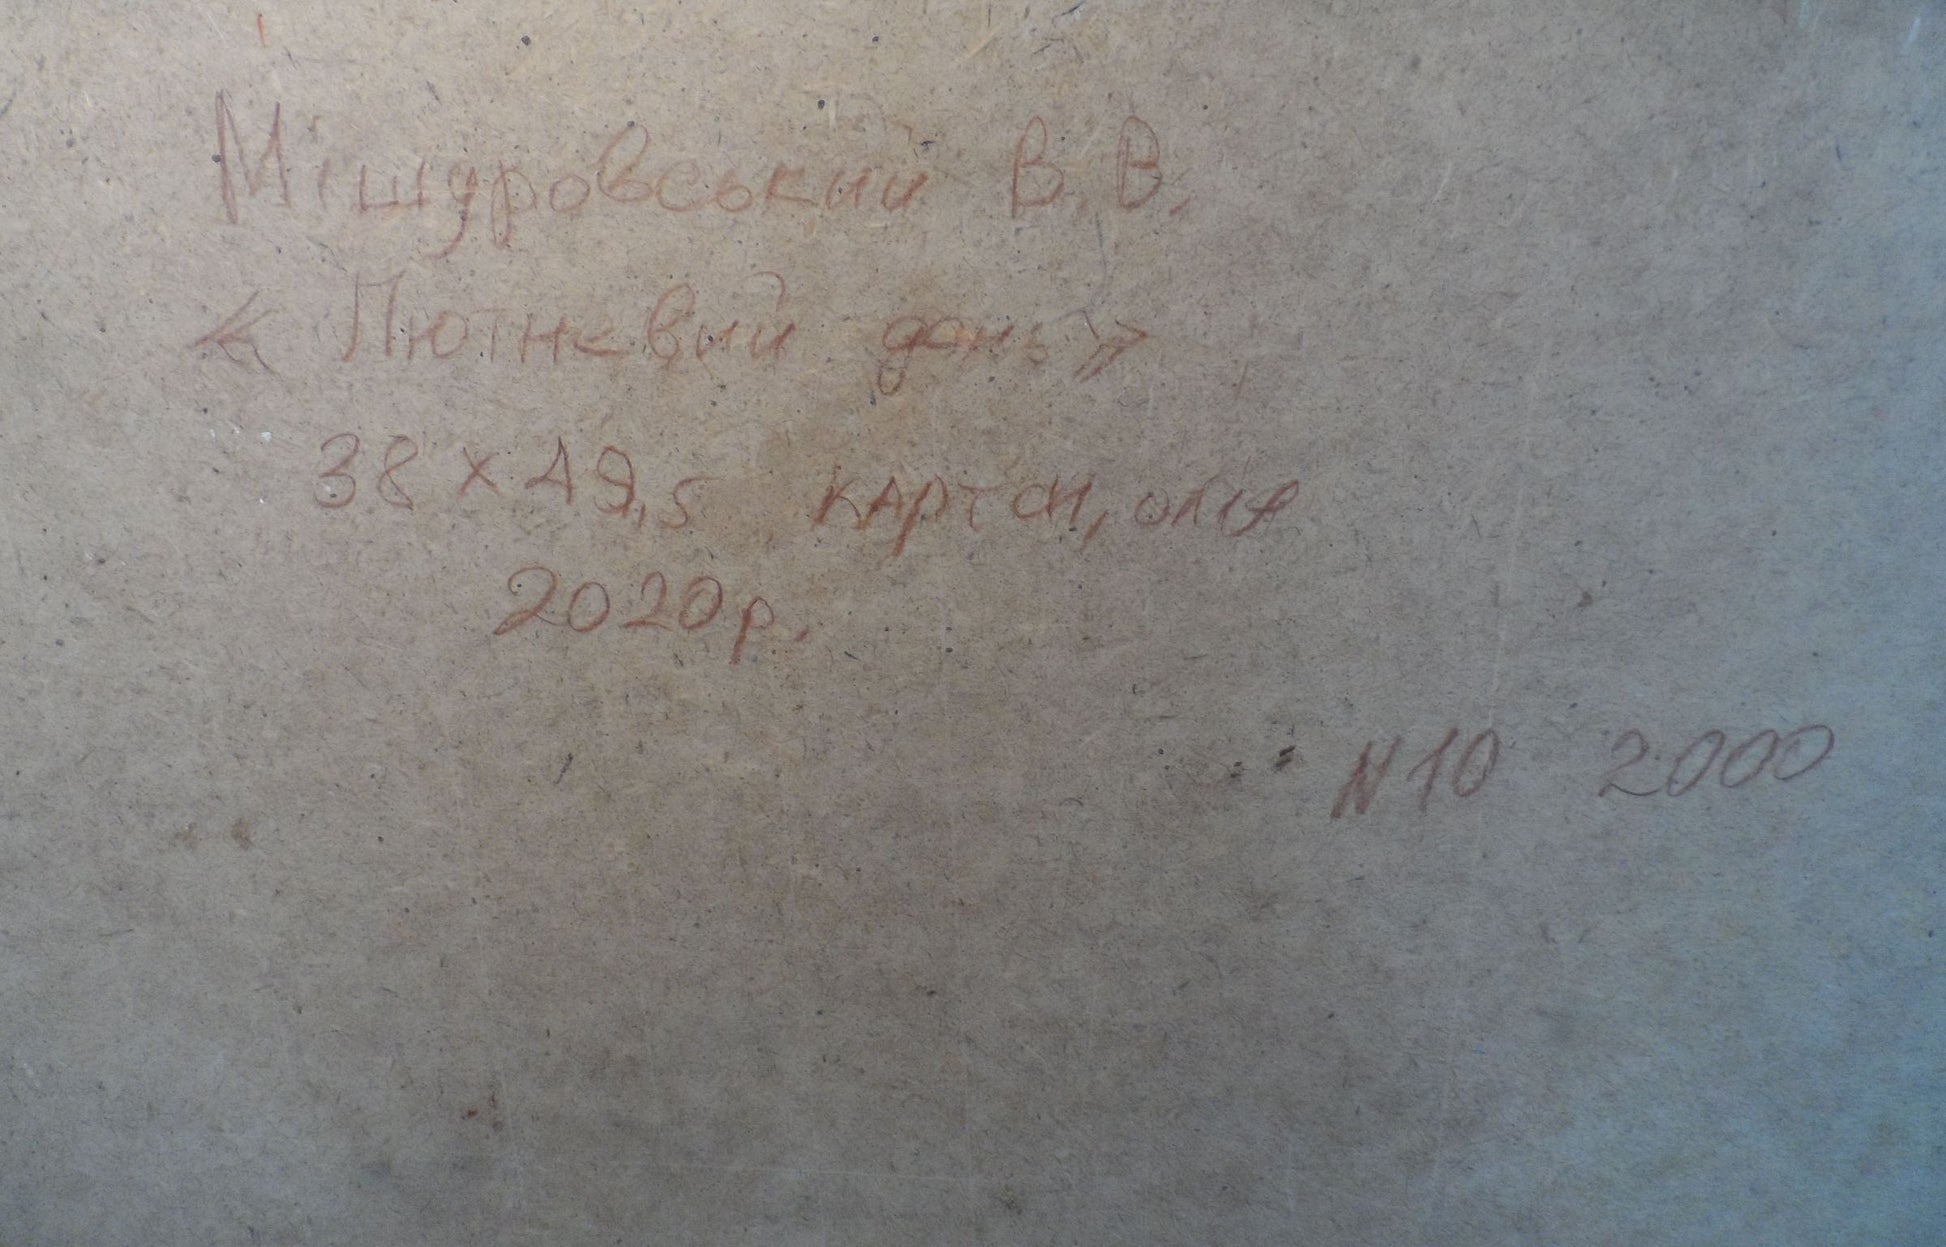 Мішуровський В.В.
« Лютневий день »
38 x 49,5 картон, олія
2020р.
N10 2000